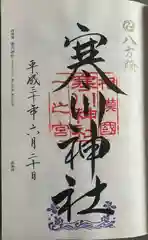 八方除
寒川神社
相模國
一之宮
平成三十年六月二十日